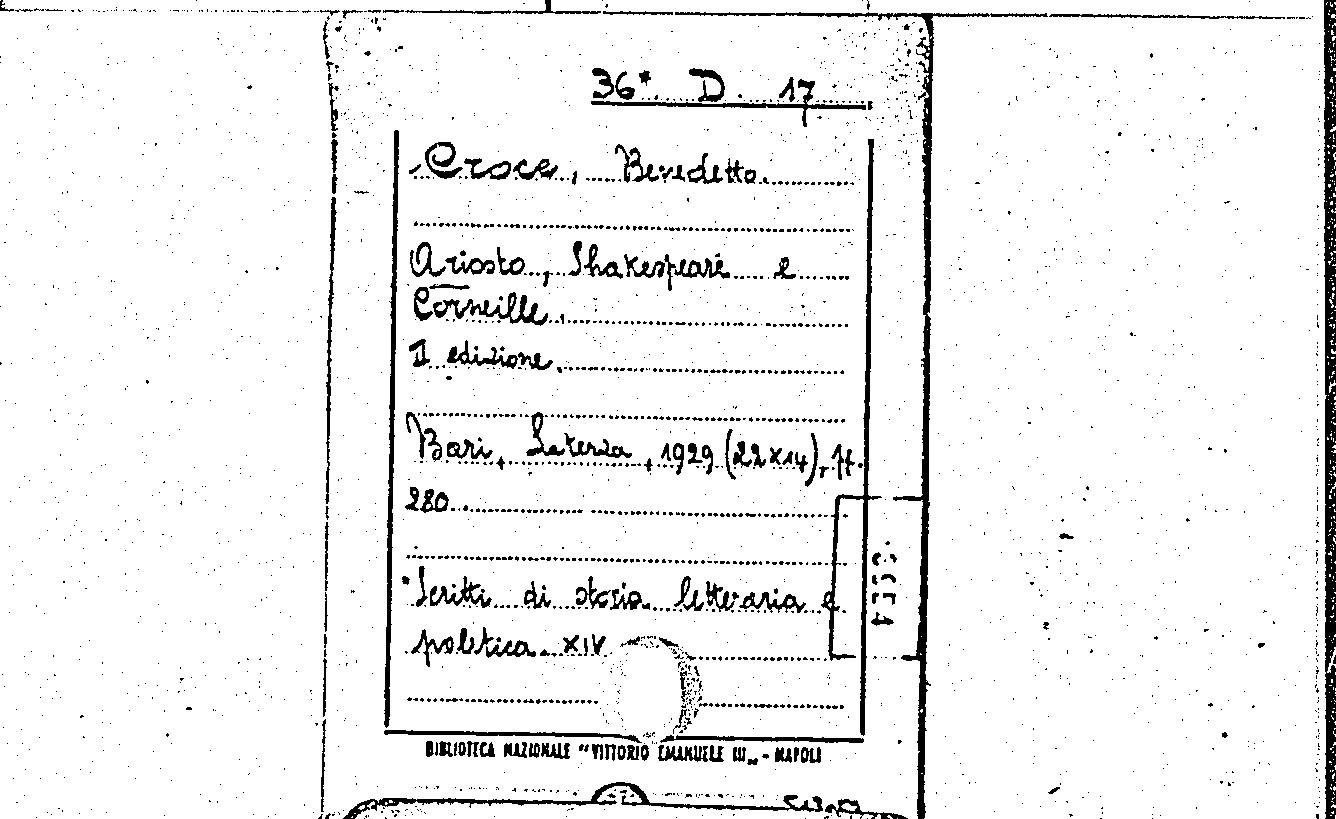 36* D. 17
Croce, Benedetto.
Ariosto, Shakespeare e
Corneille.
II edizione.
Bari, Laterza, 1929 (22x14), pp.
280.
"Scritti di storia letteraria e
politica. XIV
BIBLIOTECA NAZIONALE "VITTORIO EMANUELE III„ - NAPOLI